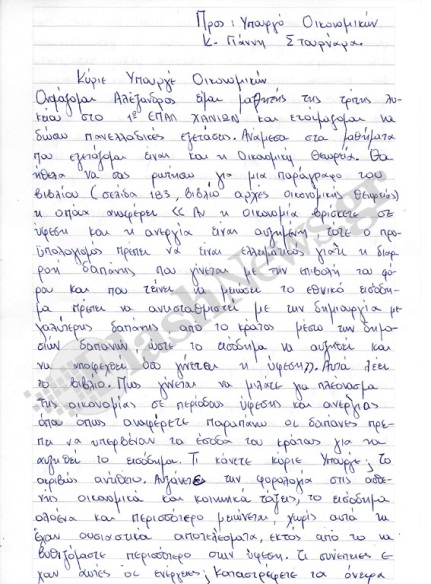 Προς: Υπουργό Οικονομικών
κ. Γιάννη Στουρνάρα.
Κύριε Υπουργέ Οικονομικών
Ονομάζομαι Αλέξανδρος είμαι μαθητής της τρίτης λυ-
κείου στο 1ο ΕΠΑΛ ΧΑΝΙΩΝ και ετοιμάζομαι να
δώσω πανελλαδικές εξετάσεις. Ανάμεσα στα μαθήματα
που εξετάζομαι είναι και η Οικονομική Θεωρία. Θα
ήθελα να σας ρωτήσω για μια παράγραφο του
βιβλίου (σελίδα 183, βιβλίο αρχές οικονομικής θεωρίας)
η οποία αναφέρει << Αν η οικονομία βρίσκετε σε
ύφεση και η ανεργία είναι αυξημένη, τότε ο προ-
υπολογισμός πρέπει να είναι ελλειματικός γιατί η διαρ-
ροή δαπάνης που γίνεται με την επιβολή του φό-
ρου και που τείνει να μειώσει το εθνικό εισόδη-
μα πρέπει να αντισταθμιστεί με την δημιουργία με-
γαλύτερης δαπάνης από το κράτος μέσω των δημο-
σίων δαπανών ώστε το εισόδημα να αυξηθεί και
να υποφέχεις όσο γίνεται η ύφεση>>. Αυτά λέει
το βιβλίο. Πως γίνεται να μιλάτε για πλεόνασμα
της οικονομίας σε περίοδους ύφεσης και ανεργίας
όπου όπως αναφέρετε παραπάνω οι δαπάνες πρέ-
πει να υπερβένουν τα έσοδα του κράτους για να
αυξηθεί το εισόδημα. Τι κάνετε κύριε Υπουργέ; Το
ακριβώς αντίθετο. Αυξάνετε την φορολογία στις ασθε-
νής οικονομικά και κοινωνικά τάξεις, το εισόδημα
ολοένα και περισσότερο μειώνεται, χωρίς αυτά να
έχουν ουσιαστικά αποτελέσματα, εκτός από το να
βυθιζόμαστε περισσότερο στην ύφεση. Τι συνέπειες έ-
χουν αυτές οι ενέργειες; Καταστρέφετε τα όνειρα
FlashNews.gr